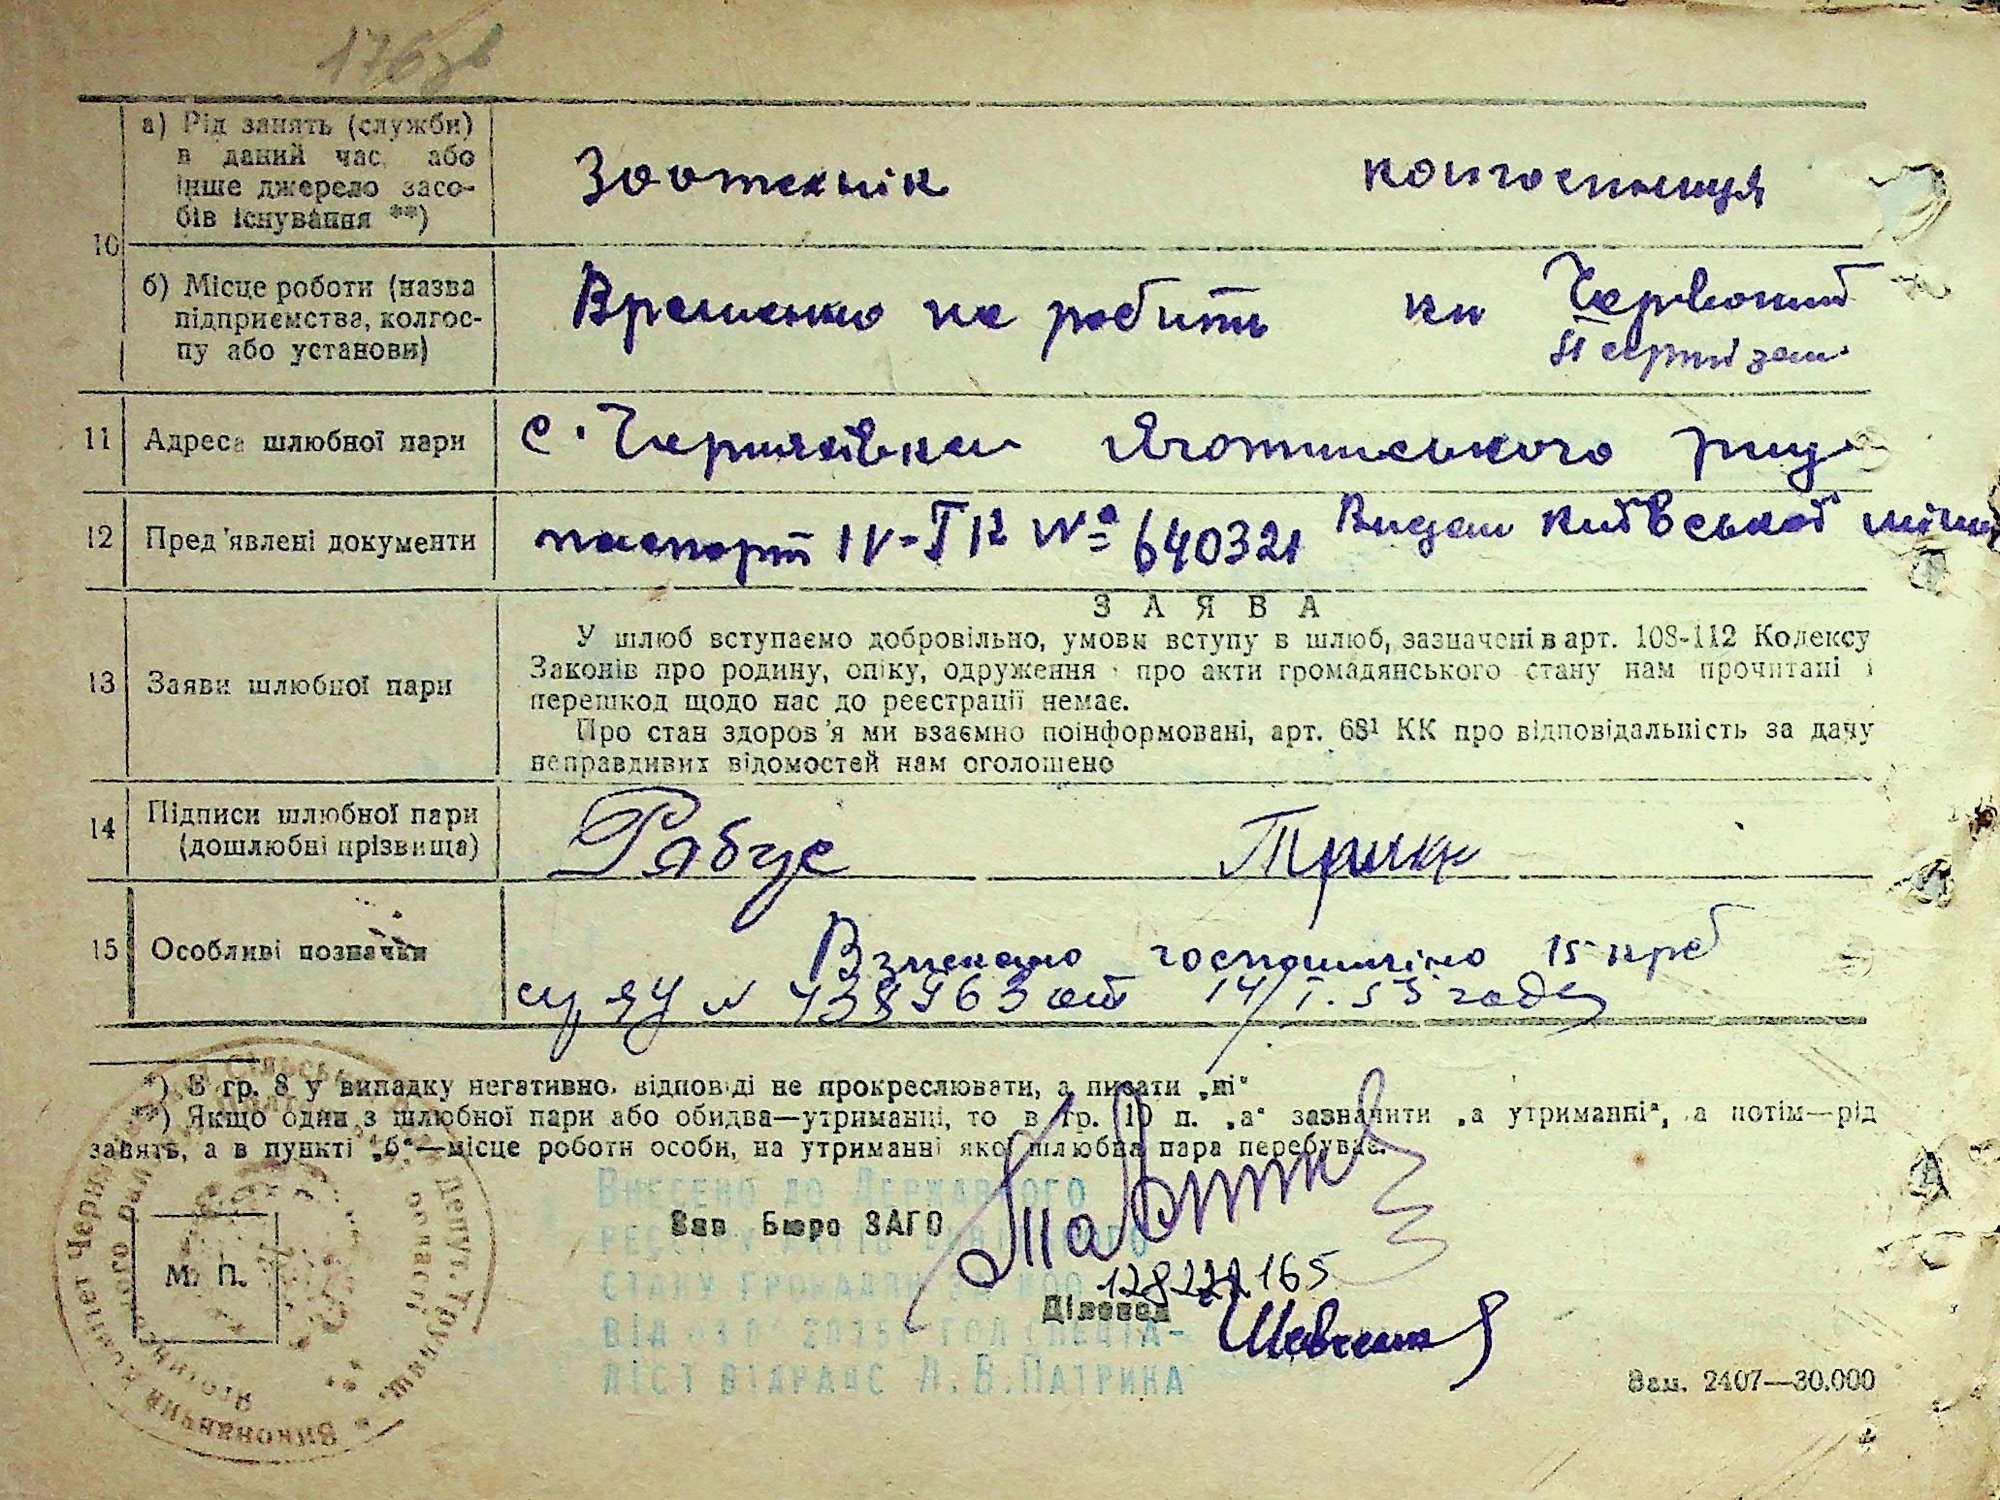 176 зв
а) Рід занять (служби)
в даний час або
інше джерело засо-
бів існування **)
Зоотехнік колгоспниця
10
б) Місце роботи (назва
підприємства, колгос-
пу або установи)
Временно не робить кп Червоний
Партизан
11 Адреса шлюбної пари с. Черняхівка Яготинського р-ну
12 Пред'явлені документи паспорт IV-ТК № 640321 Видан Київської
ЗАЯВА
13 Заяви шлюбної пари
У шлюб вступаємо добровільно, умови вступу в шлюб, зазначені в арт. 108-112 Кодексу
Законів про родину, опіку, одруження і про акти громадянського стану нам прочитані і
перешкод щодо нас до реєстрації немає.
Про стан здоров'я ми взаємно поінформовані, арт. 68¹ КК про відповідальність за дачу
неправдивих відомостей нам оголошено
14 Підписи шлюбної пари
(дошлюбні прізвища)
Рябус
15 Особливі позначки
Взискано госпошліно 15 крб
от 14/I.53 года
*) В гр. 8 у випадку негативної відповіді не прокреслювати, а писати „ні“
**) Якщо один з шлюбної пари або обидва—утриманці, то в гр. 10 п. „а“ зазначити „а утриманні“, а потім—рід
занять, а в пункті „б“—місце роботи особи, на утриманні якої шлюбна пара перебуває.
Внесено до Державного
Зав Бюро ЗАГС
стану громадян за
М. П.
Діловод
Шевченко
ліст відрадс Л.В.Патрина
Зам. 2407—30.000